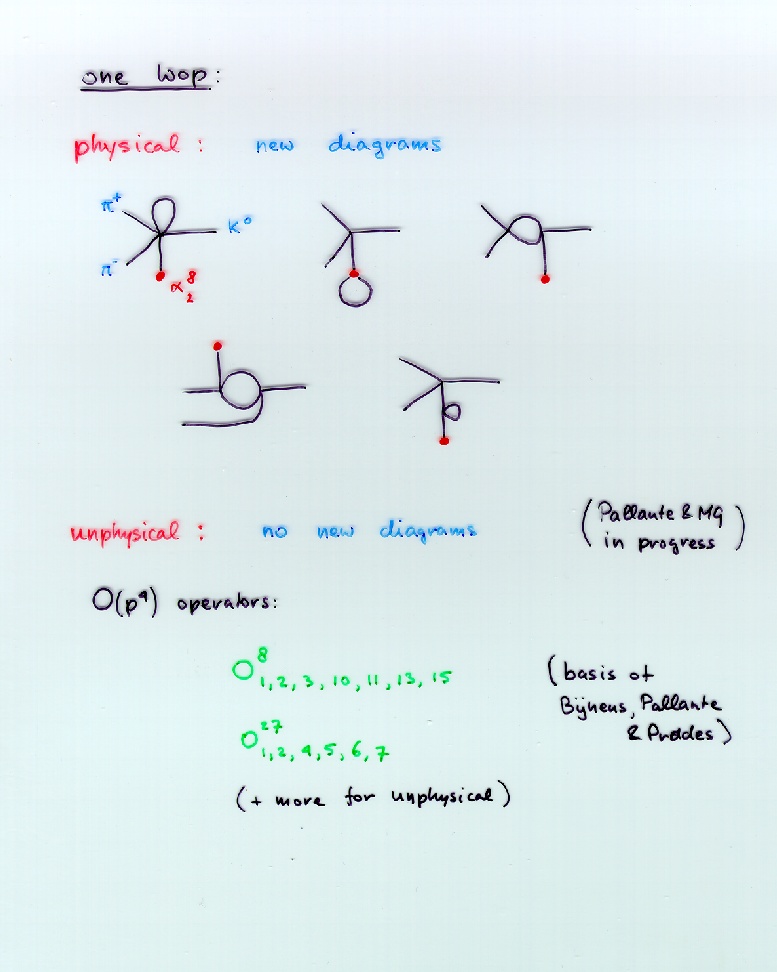 one loop:
physical: new diagrams
π⁺
K⁰
π⁻
α⁸₂
unphysical: no new diagrams
(Pallante & MG
in progress)
O(p⁴) operators:
O⁸₁,₂,₃,₁₀,₁₁,₁₃,₁₅
(basis of
Bijnens, Pallante
& Prades)
O²⁷₁,₂,₄,₅,₆,₇
(+ more for unphysical)